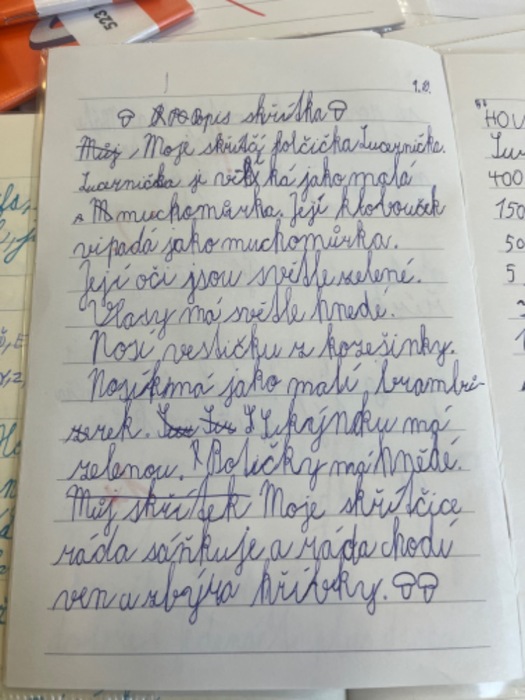 523
1.2.
popis skřítka
Můj, Moje skřítčí holčička Lucernička.
Lucernička je velká jako malá
muchomůrka. Její klobouček
vipadá jako muchomůrka.
Její oči jsou světle zelené.
Vlasy má světle hnedé.
Nosí vestičku z kožešinky.
Nosík má jako malí brambů-
rek.
zelenou. Botičky má hnědé.
Můj skřítek Moje skřítčice
ráda sáňkuje a ráda chodí
ven a zbýra hříbky.
"HOV
400
150
50
5